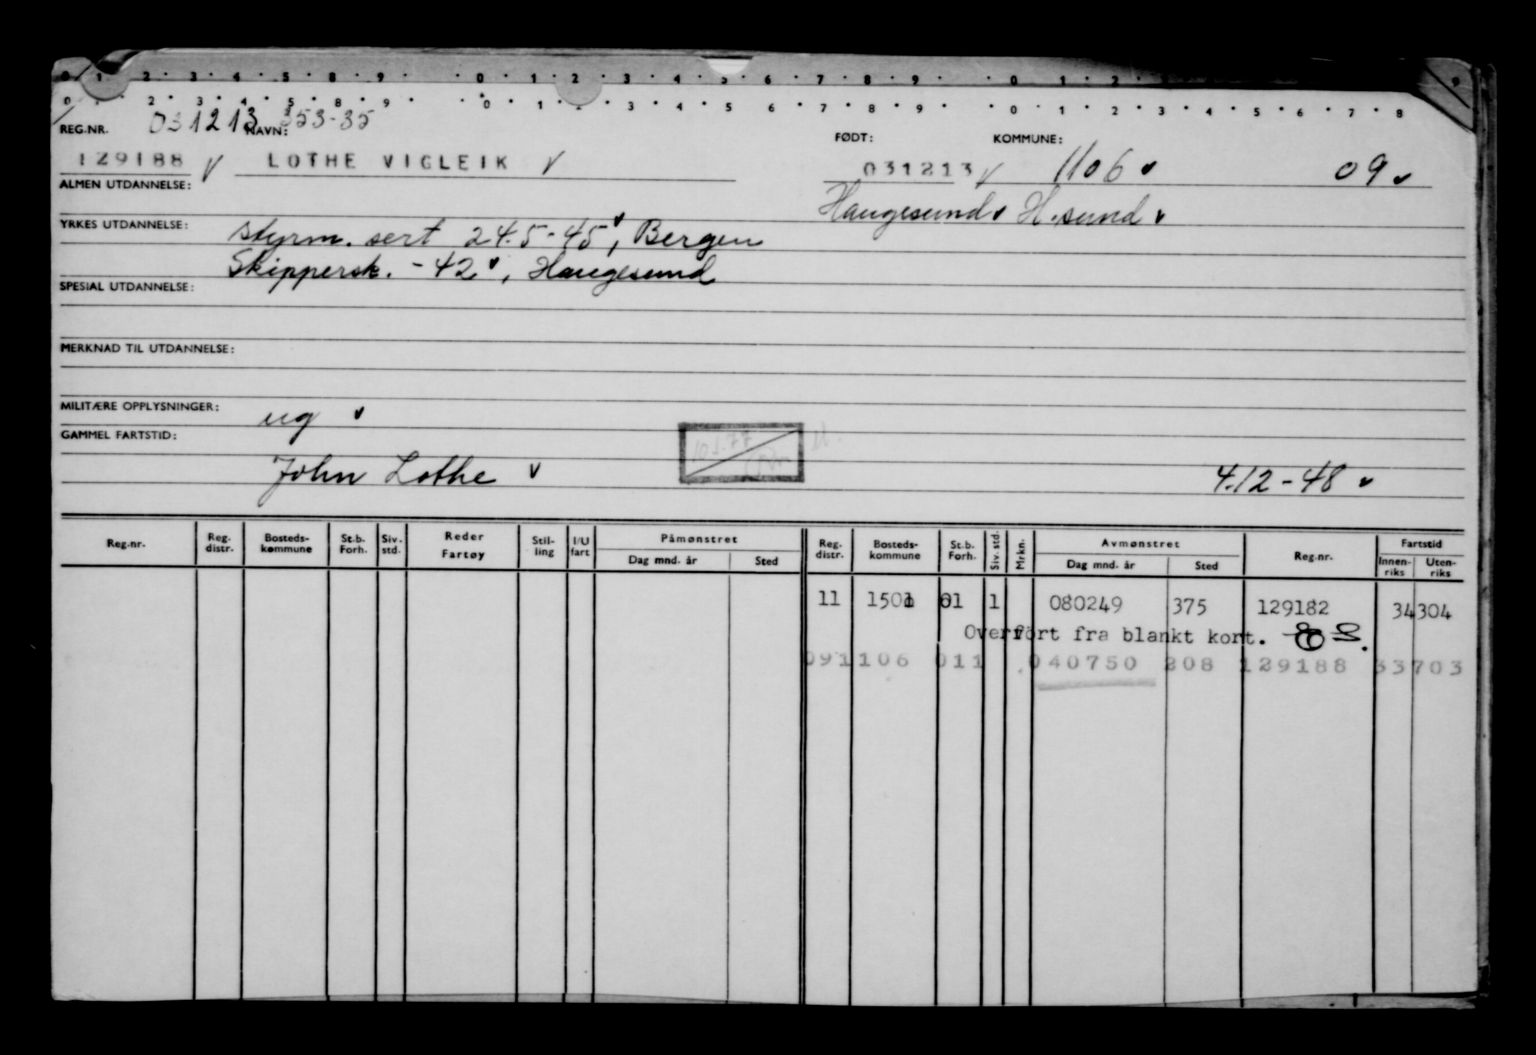 0 1 2 3 4 5 8 9 0 1 2 3 4 5 6 7 8 9 0 1 2 9
0 1 2 3 4 5 8 9 0 1 3 4 5 6 7 8 9 0 1 2 3 4 5 6 7 8
REG.NR. 031213 NAVN: 353-35 FØDT: KOMMUNE:
129188 LOTHE VIGLEIK 031213 1106 09
ALMEN UTDANNELSE: Haugesund H.sund
YRKES UTDANNELSE: styrm. sert 24.5-45, Bergen
Skippersk. -42, Haugesund
SPESIAL UTDANNELSE:
MERKNAD TIL UTDANNELSE:
MILITÆRE OPPLYSNINGER: ug
GAMMEL FARTSTID:
John Lothe 4.12-48
Reg.nr. Reg. distr. Bosteds- kommune St.b. Forh. Siv. std. Reder Fartøy Stil- ling I/U fart Påmønstret Reg. distr. Bosteds- kommune St.b. Forh. Siv. std. Mrkn. Avmønstret Reg.nr. Fartstid
Dag mnd. år Sted Dag mnd. år Sted Innen- riks Uten- riks
11 1501 01 1 080249 375 129182 34304
Overført fra blankt kort.
091106 011 040750 208 129188 33703